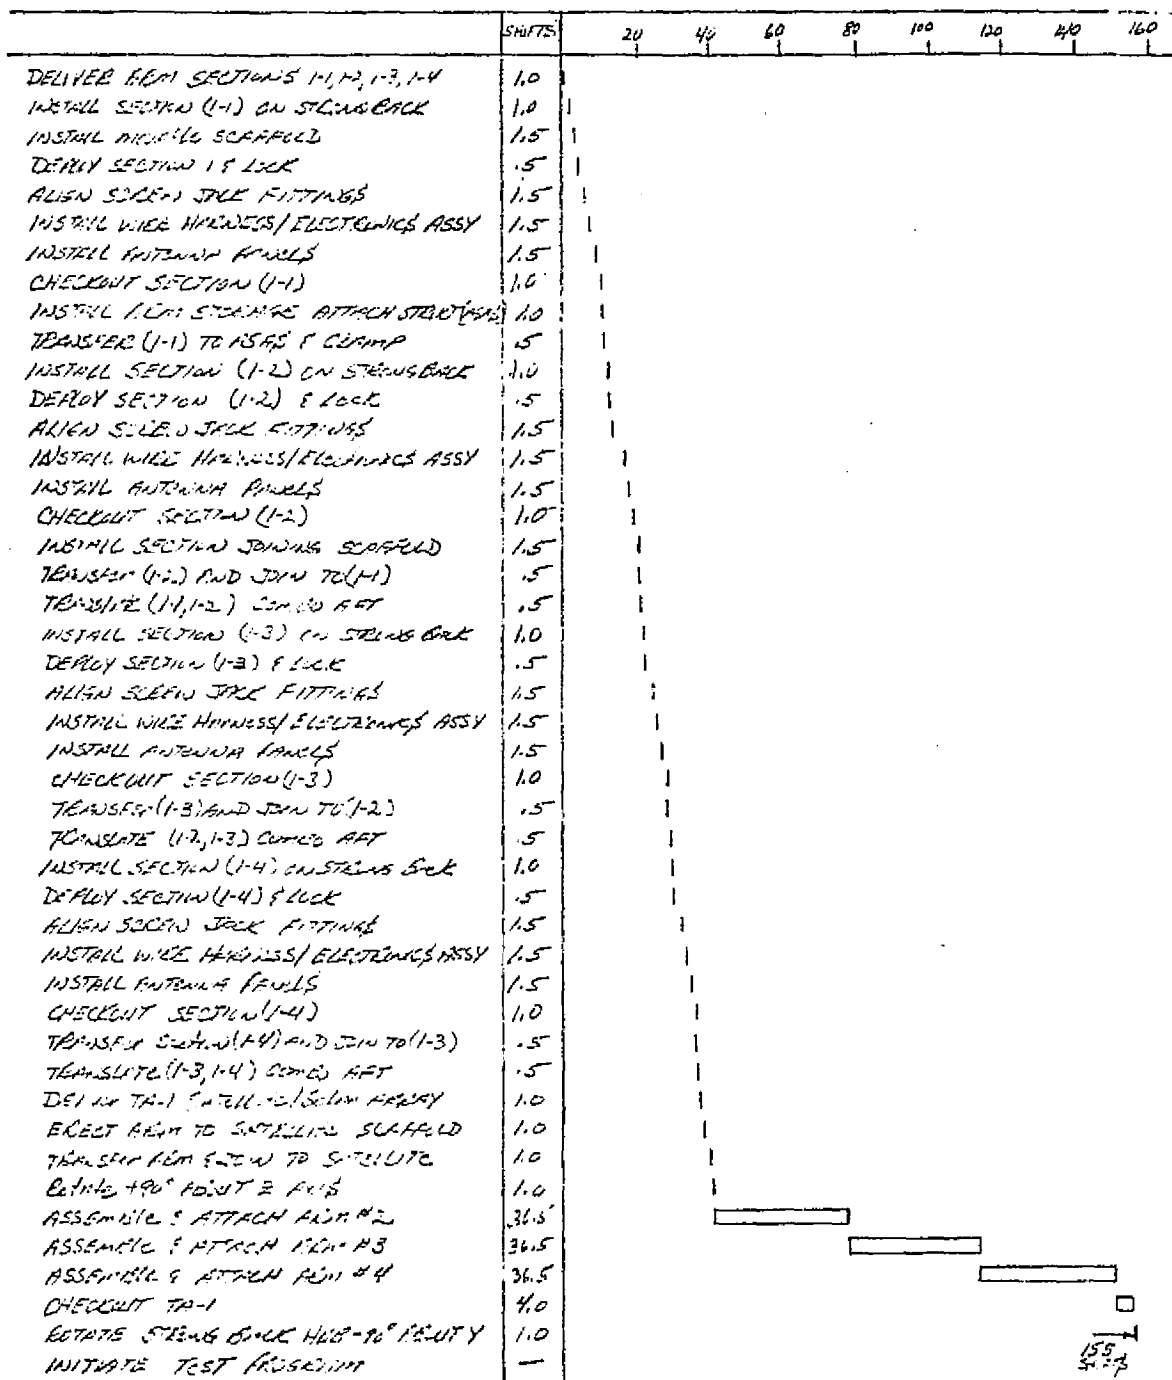 SHIFTS 20 40 60 80 100 120 140 160
DELIVER ARM SECTIONS 1-1, 1-2, 1-3, 1-4 1.0
INSTALL SECTION (1-1) ON STRONGBACK 1.0
INSTALL MOBILE SCAFFOLD 1.5
DEPLOY SECTION 1 & LOCK .5
ALIGN SCREW JACK FITTINGS 1.5
INSTALL WIRE HARNESS/ELECTRONICS ASSY 1.5
INSTALL ANTENNA PANELS 1.5
CHECKOUT SECTION (1-1) 1.0
INSTALL ARM STORAGE ATTACH STRUT 1.0
TRANSFER (1-1) TO & CLAMP .5
INSTALL SECTION (1-2) ON STRONGBACK 1.0
DEPLOY SECTION (1-2) & LOCK .5
ALIGN SCREW JACK FITTINGS 1.5
INSTALL WIRE HARNESS/ELECTRONICS ASSY 1.5
INSTALL ANTENNA PANELS 1.5
CHECKOUT SECTION (1-2) 1.0
INSTALL SECTION JOINING SCAFFOLD 1.5
TRANSFER (1-2) AND JOIN TO (1-1) .5
TRANSLATE (1-1, 1-2) COMBO AFT .5
INSTALL SECTION (1-3) ON STRONG BACK 1.0
DEPLOY SECTION (1-3) & LOCK .5
ALIGN SCREW JACK FITTINGS 1.5
INSTALL WIRE HARNESS/ELECTRONICS ASSY 1.5
INSTALL ANTENNA PANELS 1.5
CHECKOUT SECTION (1-3) 1.0
TRANSFER (1-3) AND JOIN TO (1-2) .5
TRANSLATE (1-2, 1-3) COMBO AFT .5
INSTALL SECTION (1-4) ON STRONG BACK 1.0
DEPLOY SECTION (1-4) & LOCK .5
ALIGN SCREW JACK FITTINGS 1.5
INSTALL WIRE HARNESS/ELECTRONICS ASSY 1.5
INSTALL ANTENNA PANELS 1.5
CHECKOUT SECTION (1-4) 1.0
TRANSFER SECTION (1-4) AND JOIN TO (1-3) .5
TRANSLATE (1-3, 1-4) COMBO AFT .5
DELIVER TA-1 SATELLITE/SOLAR ARRAY 1.0
ERECT ARM TO SATELLITE SCAFFOLD 1.0
TRANSFER ARM & JOIN TO SATELLITE 1.0
ROTATE +90° ABOUT Z AXIS 1.0
ASSEMBLE & ATTACH ARM #2 36.5
ASSEMBLE & ATTACH ARM #3 36.5
ASSEMBLE & ATTACH ARM #4 36.5
CHECKOUT TA-1 4.0
ROTATE STRONG BACK HUB -90° ABOUT Y 1.0
INITIATE TEST PROGRAM —
155
SHIFTS